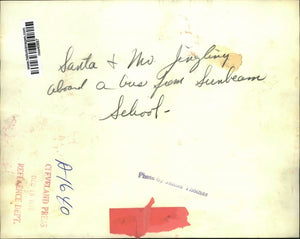 Santa & Mr Jingling
aboard a bus from Sunbeam
School-
A-1640
CLEVELAND PRESS
REFERENCE DEPT.
Photo by